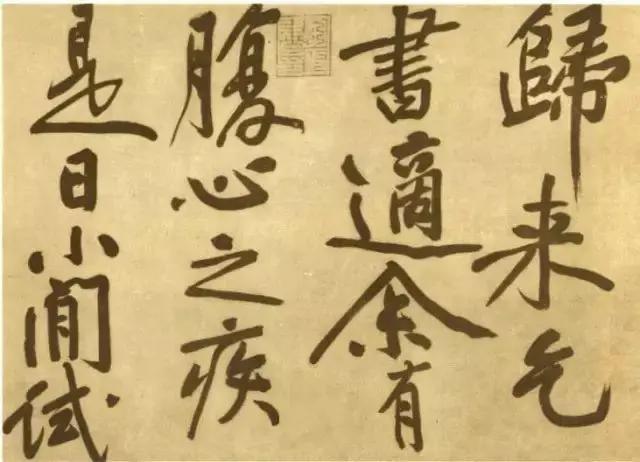 歸来乞
書適余有
腹心之疾
是日小間試